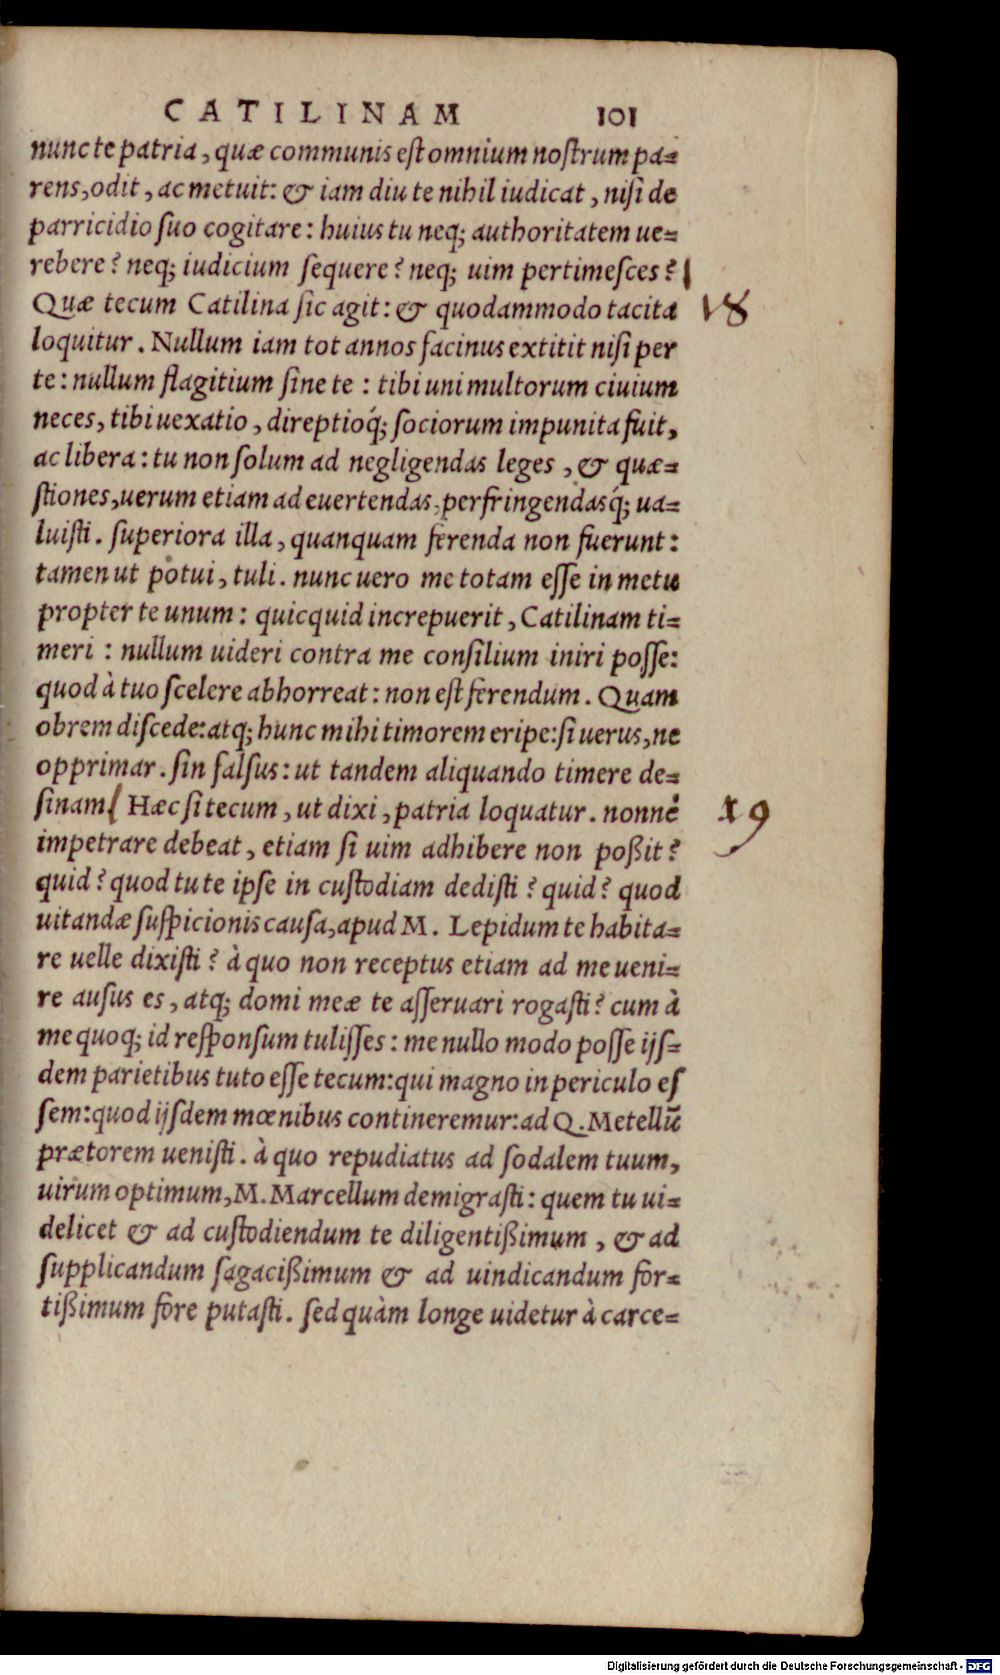 CATILINAM 101
nunc te patria, quæ communis est omnium nostrum pa=
rens, odit, ac metuit: & iam diu te nihil iudicat, nisi de
parricidio suo cogitare: huius tu neq; authoritatem ue=
rebere? neq; iudicium sequere? neq; uim pertimesces?
Quæ tecum Catilina sic agit: & quodammodo tacita
18
loquitur. Nullum iam tot annos facinus extitit nisi per
te: nullum flagitium sine te: tibi uni multorum ciuium
neces, tibi uexatio, direptioq́; sociorum impunita fuit,
ac libera: tu non solum ad negligendas leges, & quæ=
stiones, uerum etiam ad euertendas, perfringendasq́; ua=
luisti. superiora illa, quanquam ferenda non fuerunt:
tamen ut potui, tuli. nunc uero me totam esse in metu
propter te unum: quicquid increpuerit, Catilinam ti=
meri: nullum uideri contra me consilium iniri posse:
quod à tuo scelere abhorreat: non est ferendum. Quam
obrem discede: atq; hunc mihi timorem eripe: si uerus, ne
opprimar. sin falsus: ut tandem aliquando timere de=
sinam. Hæc si tecum, ut dixi, patria loquatur. nonné
19
impetrare debeat, etiam si uim adhibere non poßit?
quid? quod tu te ipse in custodiam dedisti? quid? quod
uitandæ suspicionis causa, apud M. Lepidum te habita=
re uelle dixisti? à quo non receptus etiam ad me ueni=
re ausus es, atq; domi meæ te asseruari rogasti? cum à
me quoq; id responsum tulisses: me nullo modo posse ijs=
dem parietibus tuto esse tecum: qui magno in periculo es
sem: quod ijsdem mœnibus contineremur: ad Q. Metellū
prætorem uenisti. à quo repudiatus ad sodalem tuum,
uirum optimum, M. Marcellum demigrasti: quem tu ui=
delicet & ad custodiendum te diligentißimum, & ad
supplicandum sagacißimum & ad uindicandum for=
tißimum fore putasti. sed quàm longe uidetur à carce=
Digitalisierung gefördert durch die Deutsche Forschungsgemeinschaft - DFG